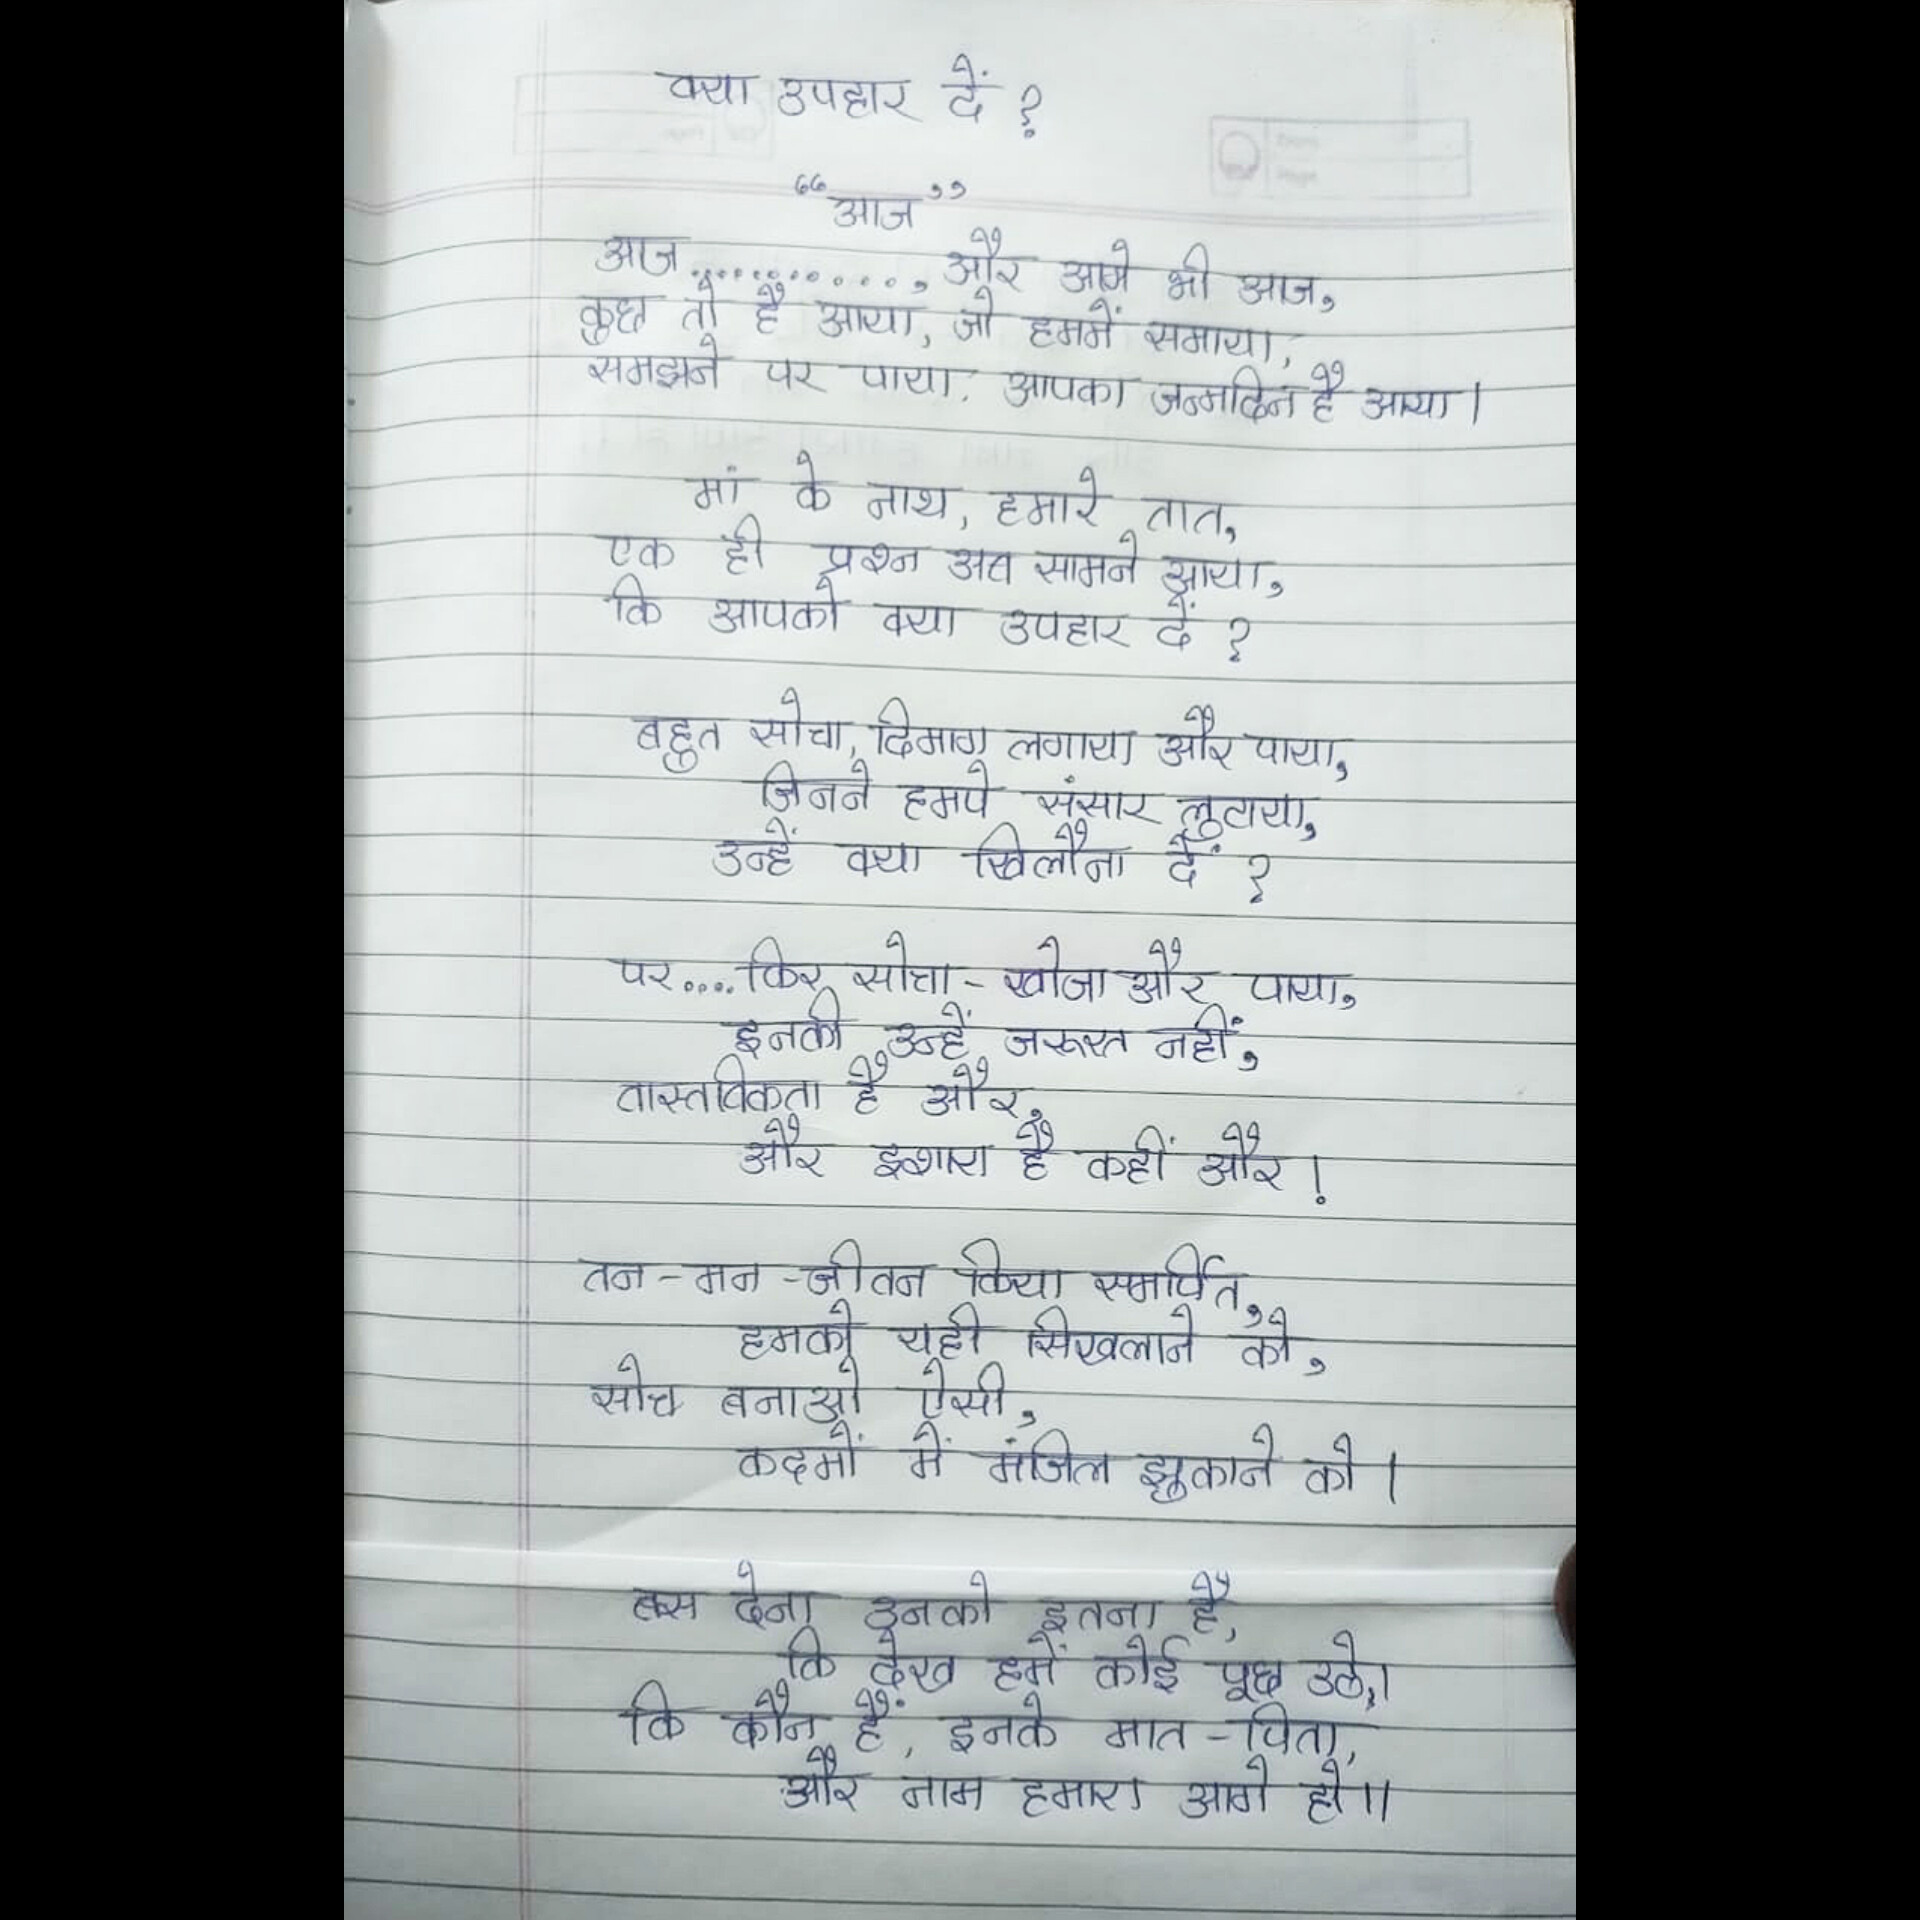 क्या उपहार दें ?
“आज”
आज............, और आगे भी आज,
कुछ तो है आया, जो हममें समाया,
समझने पर पाया, आपका जन्मदिन है आया।
मां के नाथ, हमारे तात,
एक ही प्रश्न अब सामने आया,
कि आपको क्या उपहार दें ?
बहुत सोचा, दिमाग लगाया और पाया,
जिनने हमपे संसार लुटाया,
उन्हें क्या खिलौना दें ?
पर.... फिर सोचा - खोजा और पाया,
इनकी उन्हें जरूरत नहीं,
वास्तविकता है और,
और इशारा है कहीं और !
तन - मन - जीवन किया समर्पित,
हमको यही सिखलाने को,
सोच बनाओ ऐसी,
कदमों में मंजिल झुकाने को ।
बस देना उनको इतना है,
कि देख हमें कोई पूछ उठे,।
कि कौन हैं, इनके मात - पिता,
और नाम हमारा आगे हो ।।